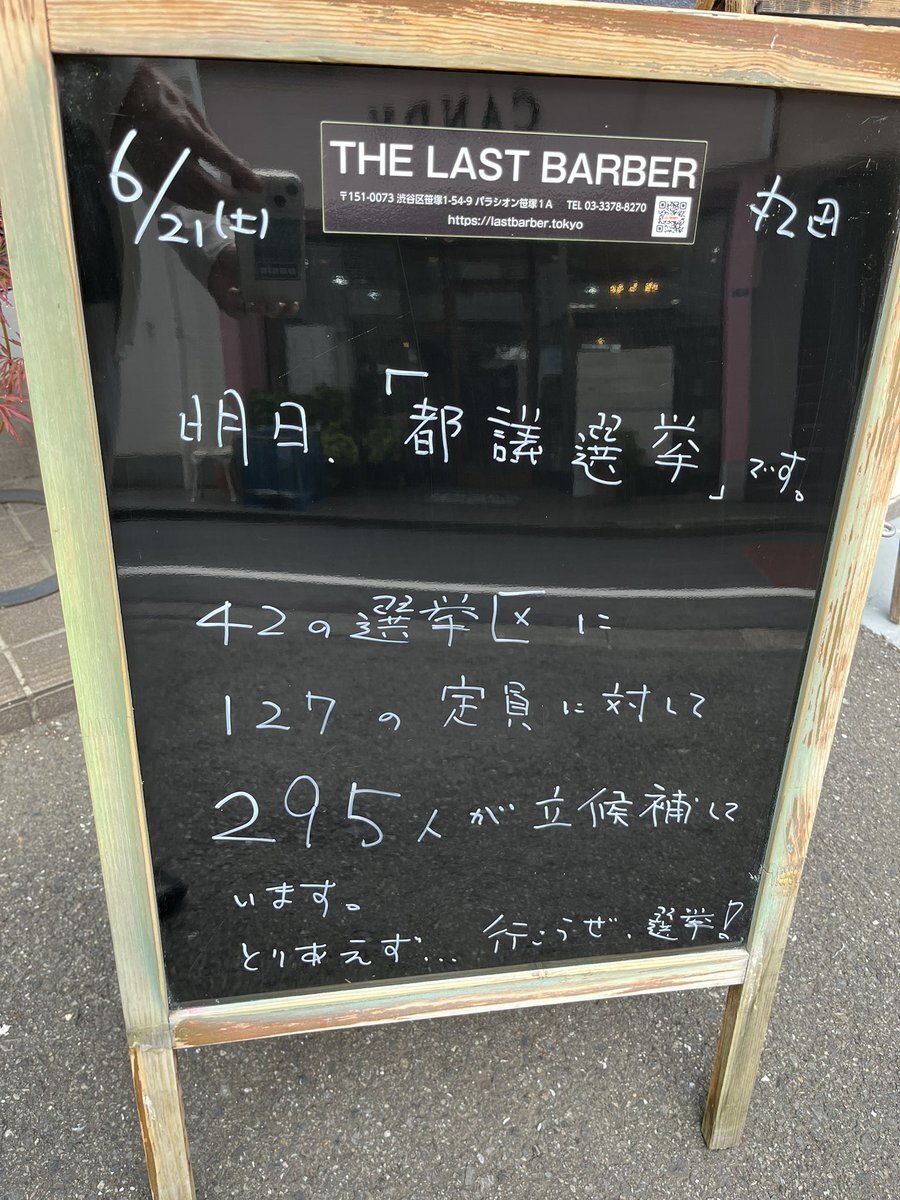 CANDY
THE LAST BARBER
〒151-0073 渋谷区笹塚1-54-9 パラシオン笹塚1A TEL 03-3378-8270
https://lastbarber.tokyo
6/21(土)
丸田
明日、「都議選挙」です。
42の選挙区に
127の定員に対して
295人が立候補して
います。
とりあえず… 行こうぜ、選挙!